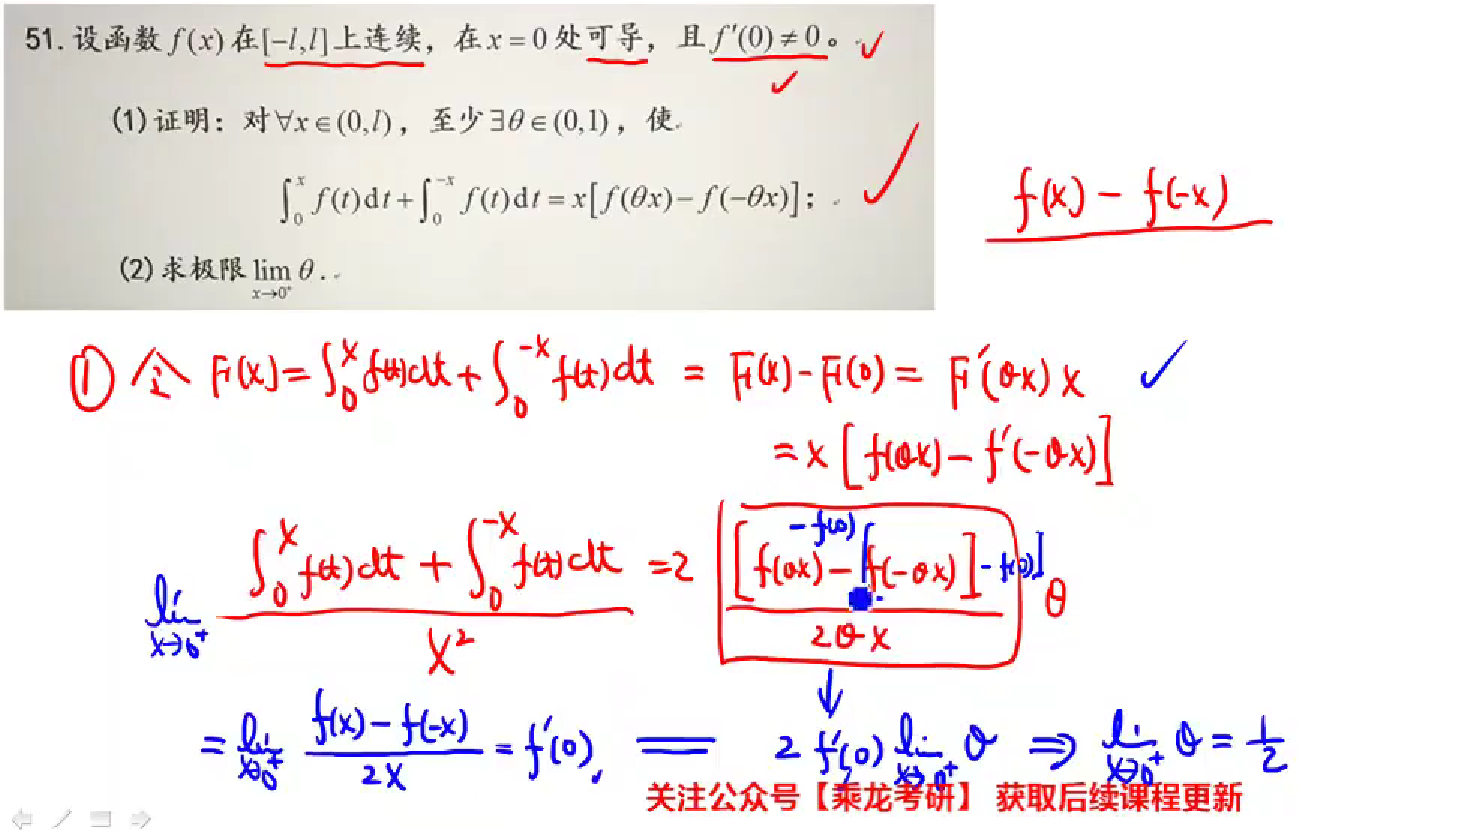 51. 设函数 f(x) 在 [-l,l] 上连续，在 x = 0 处可导，且 f′(0) ≠ 0。
(1) 证明：对 ∀x∈(0,l)，至少 ∃θ∈(0,1)，使
∫₀ˣ f(t)dt + ∫₀⁻ˣ f(t)dt = x[f(θx) − f(−θx)]；
f(x) − f(-x)
(2) 求极限 lim θ.
x→0⁺
① 令 F(x) = ∫₀ˣ f(t)dt + ∫₀⁻ˣ f(t)dt = F(x) - F(0) = F′(θx) x
= x [f(θx) − f′(−θx)]
lim x→0⁺ (∫₀ˣ f(t)dt + ∫₀⁻ˣ f(t)dt) / x² = 2 [f(θx) - f(0) − [f(−θx)] - f(0)] / 2θx θ
= lim x→0⁺ (f(x) − f(-x)) / 2x = f′(0), = 2 f′(0) lim x→0⁺ θ ⇒ lim x→0⁺ θ = 1/2
关注公众号【乘龙考研】 获取后续课程更新